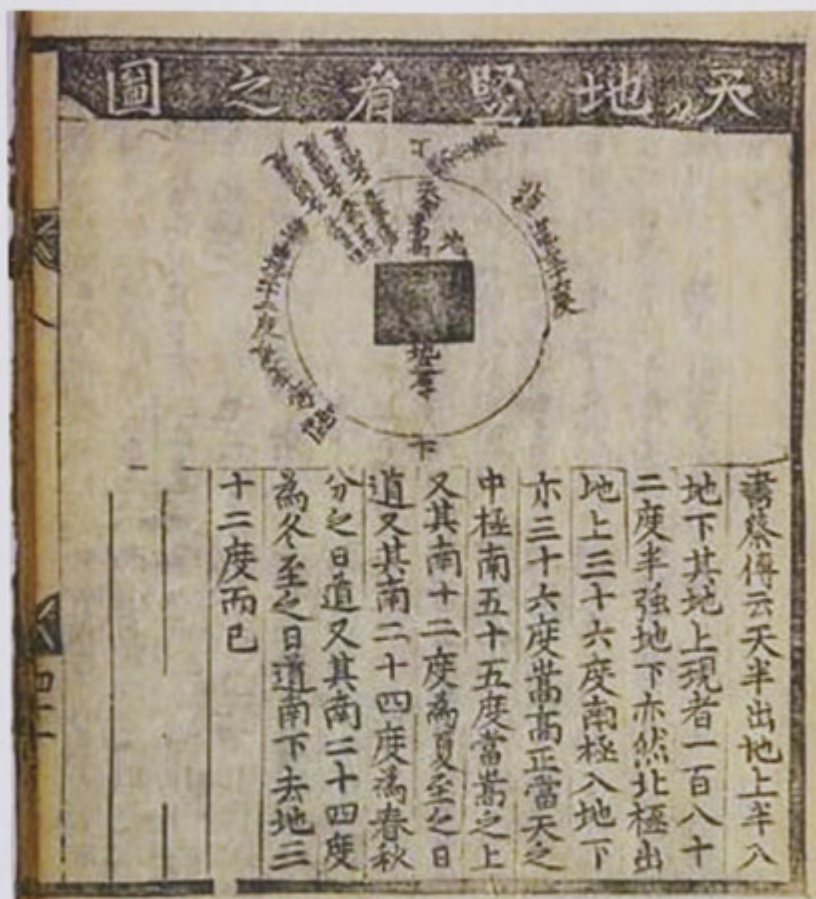 天地竪看之圖
地
下
書蔡傳云天半出地上半入
地下其地上現者一百八十
二度半強地下亦然北極出
地上三十六度南極入地下
亦三十六度嵩高正當天之
中極南五十五度當嵩之上
又其南十二度為夏至之日
道又其南二十四度為春秋
分之日道又其南二十四度
為冬至之日道南下去地三
十二度而已